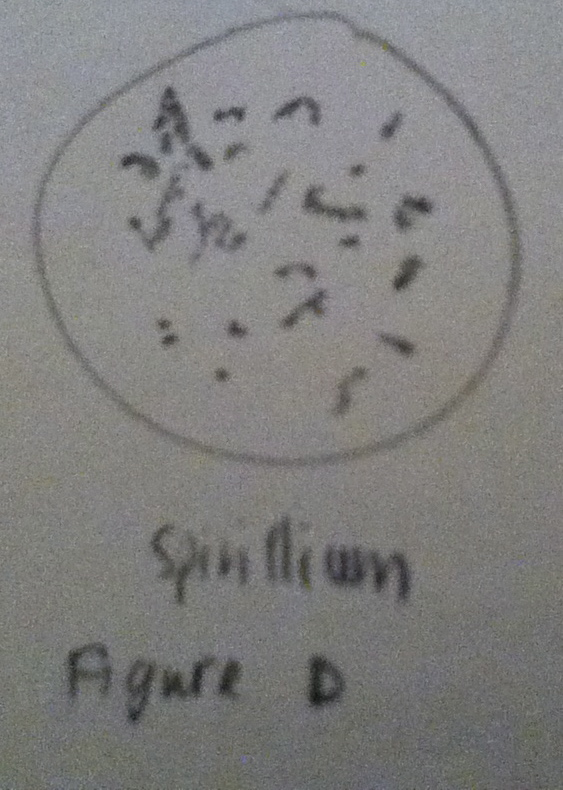 Spirillium
Figure D